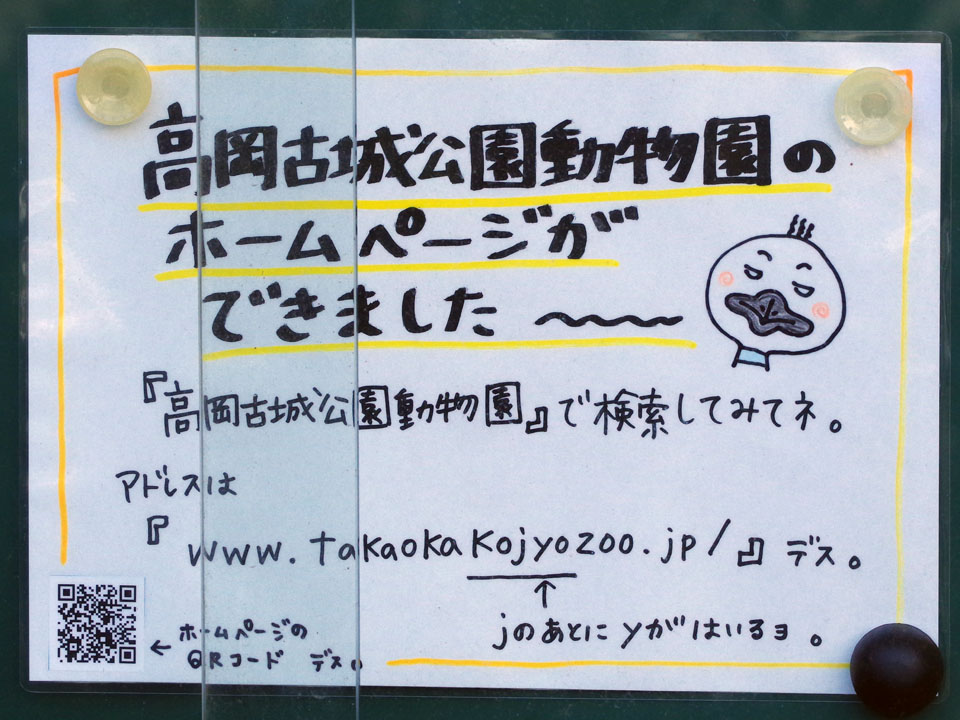 高岡古城公園動物園の
ホームページが
できました〜〜
『高岡古城公園動物園』で検索してみてネ。
アドレスは
『www.takaokakojyozoo.jp/』デス。
↑
jのあとにyがはいるヨ。
←ホームページの
QRコード デス。